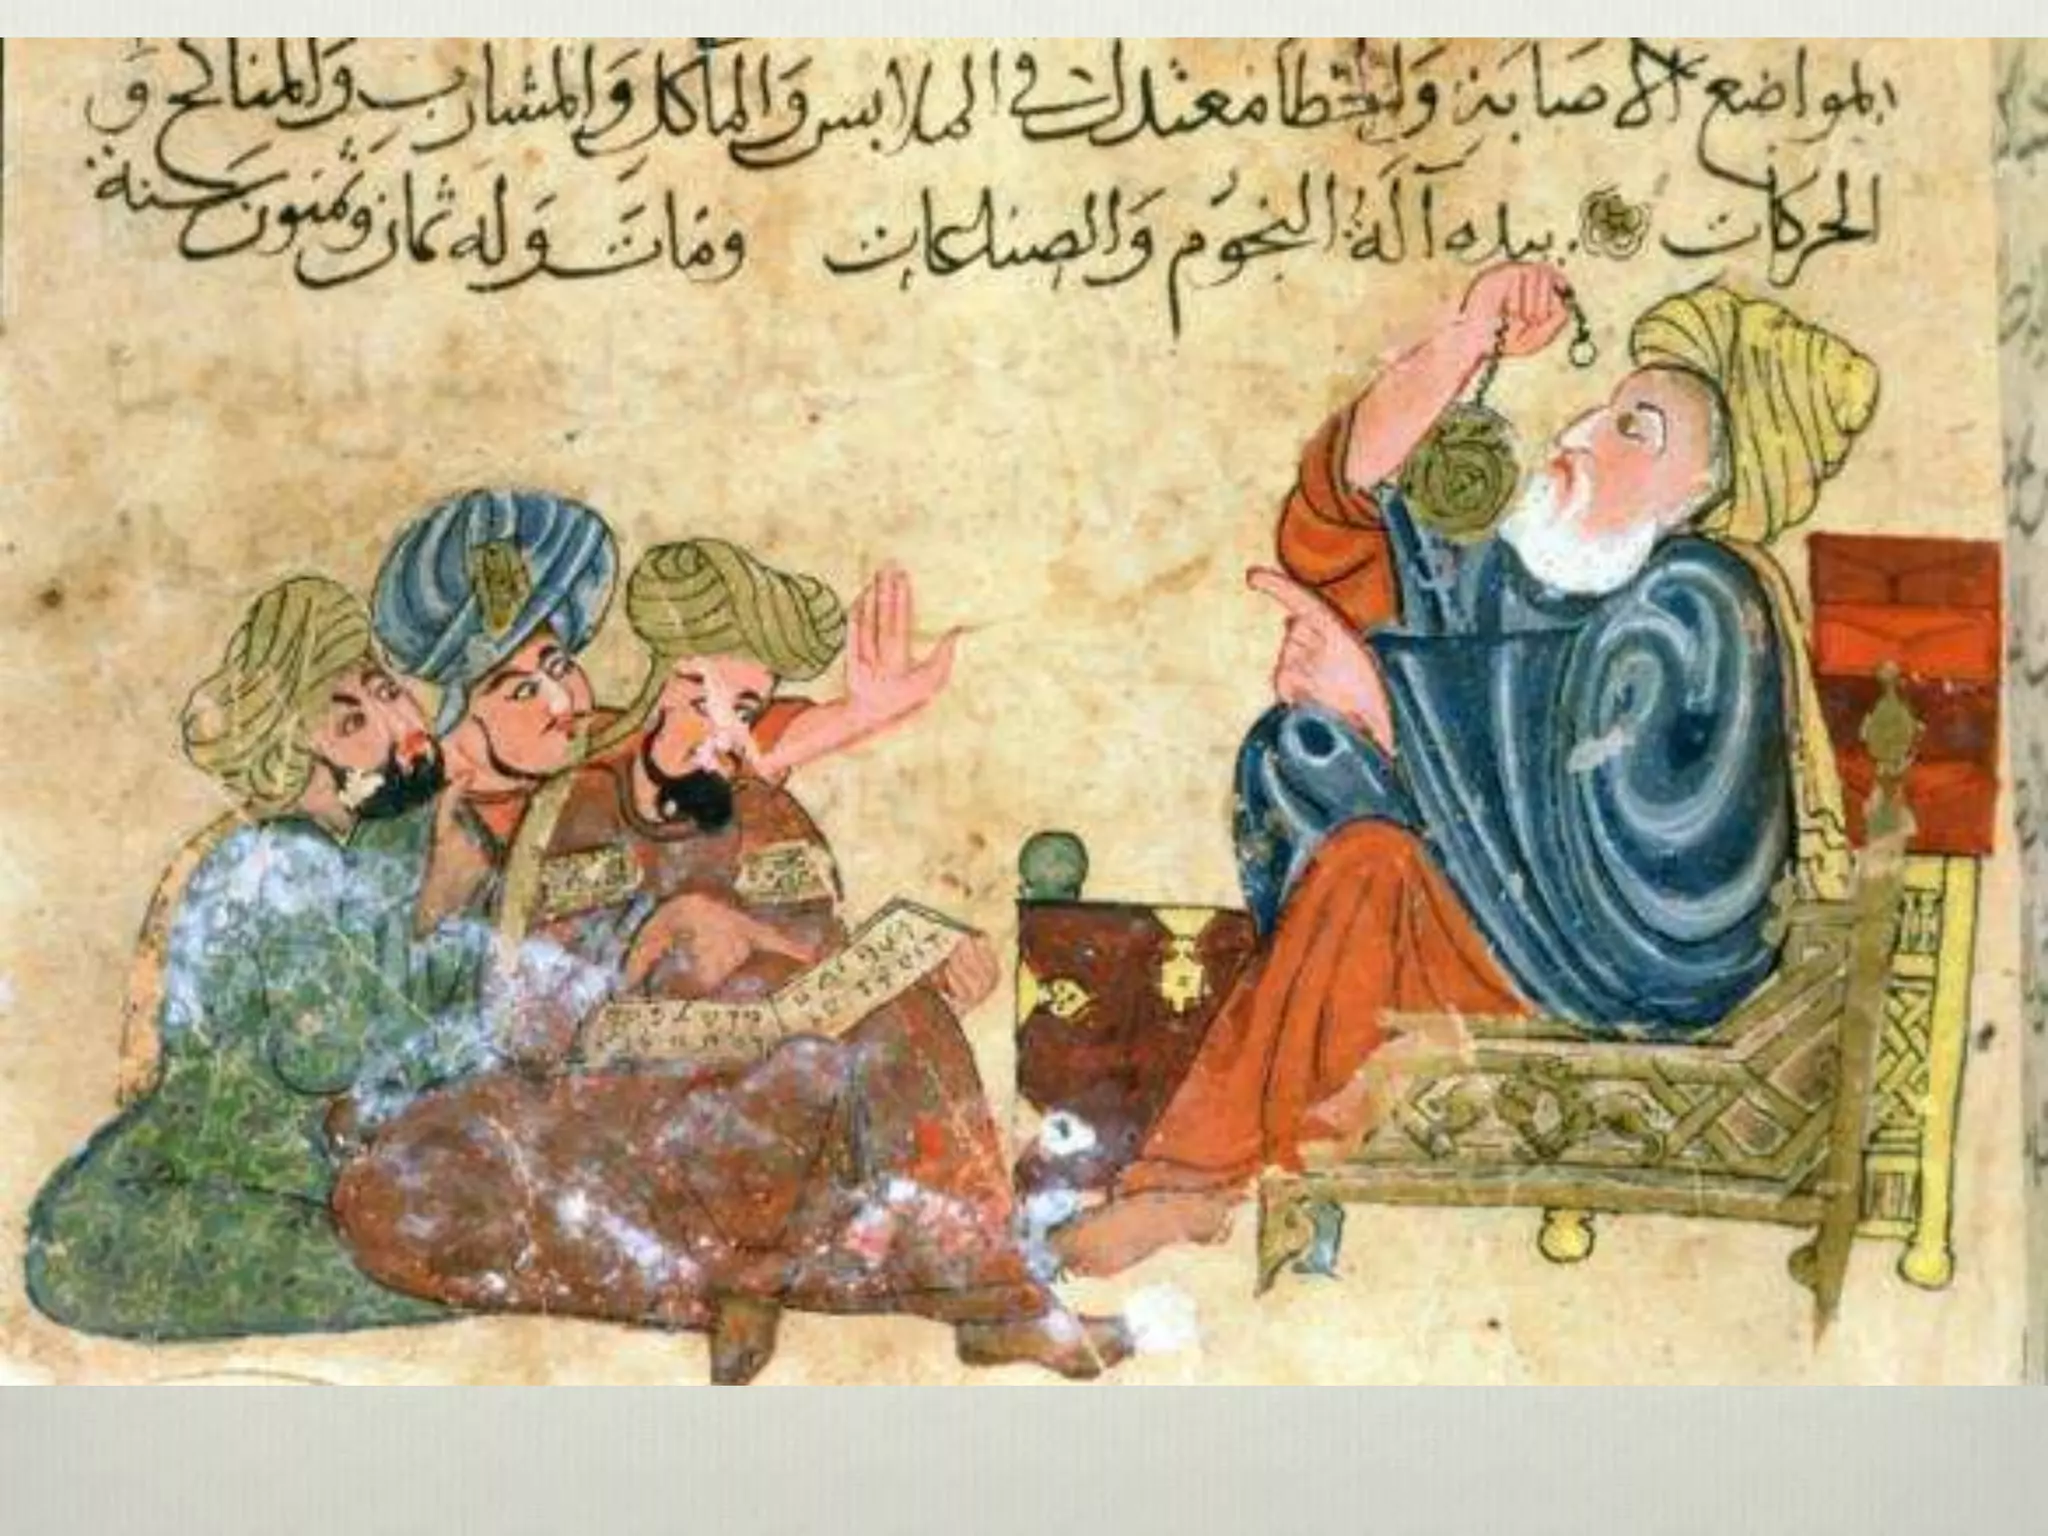 المواضع الاصابة والخطأ معتدل في الملابس والمآكل والمشارب والمناكح و
الحركات بيده آلة النجوم والصناعات ومات وله ثمان وثمنون سنة